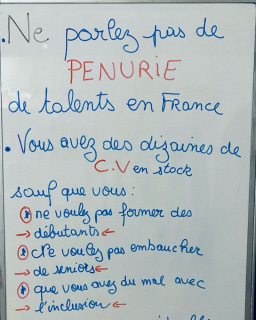 • Ne parlez pas de
PENURIE
de talents en France
• Vous avez des dizaines de
C.V en stock
sauf que vous :
* ne voulez pas former des
→ débutants ←
* Ne voulez pas embaucher
→ de seniors ←
* que vous avez du mal avec
→ l'inclusion ←